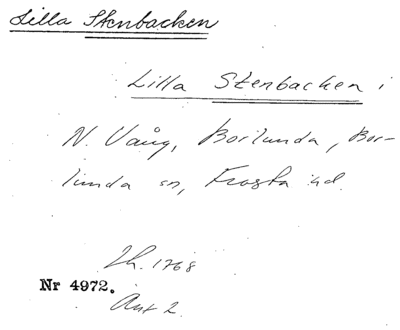 Lilla Stenbacken
Lilla Stenbacken i
N. Vång, Borlunda, Bor-
lunda sn, Frosta hd.
Lh. 1768
Nr 4972.
Akt 2